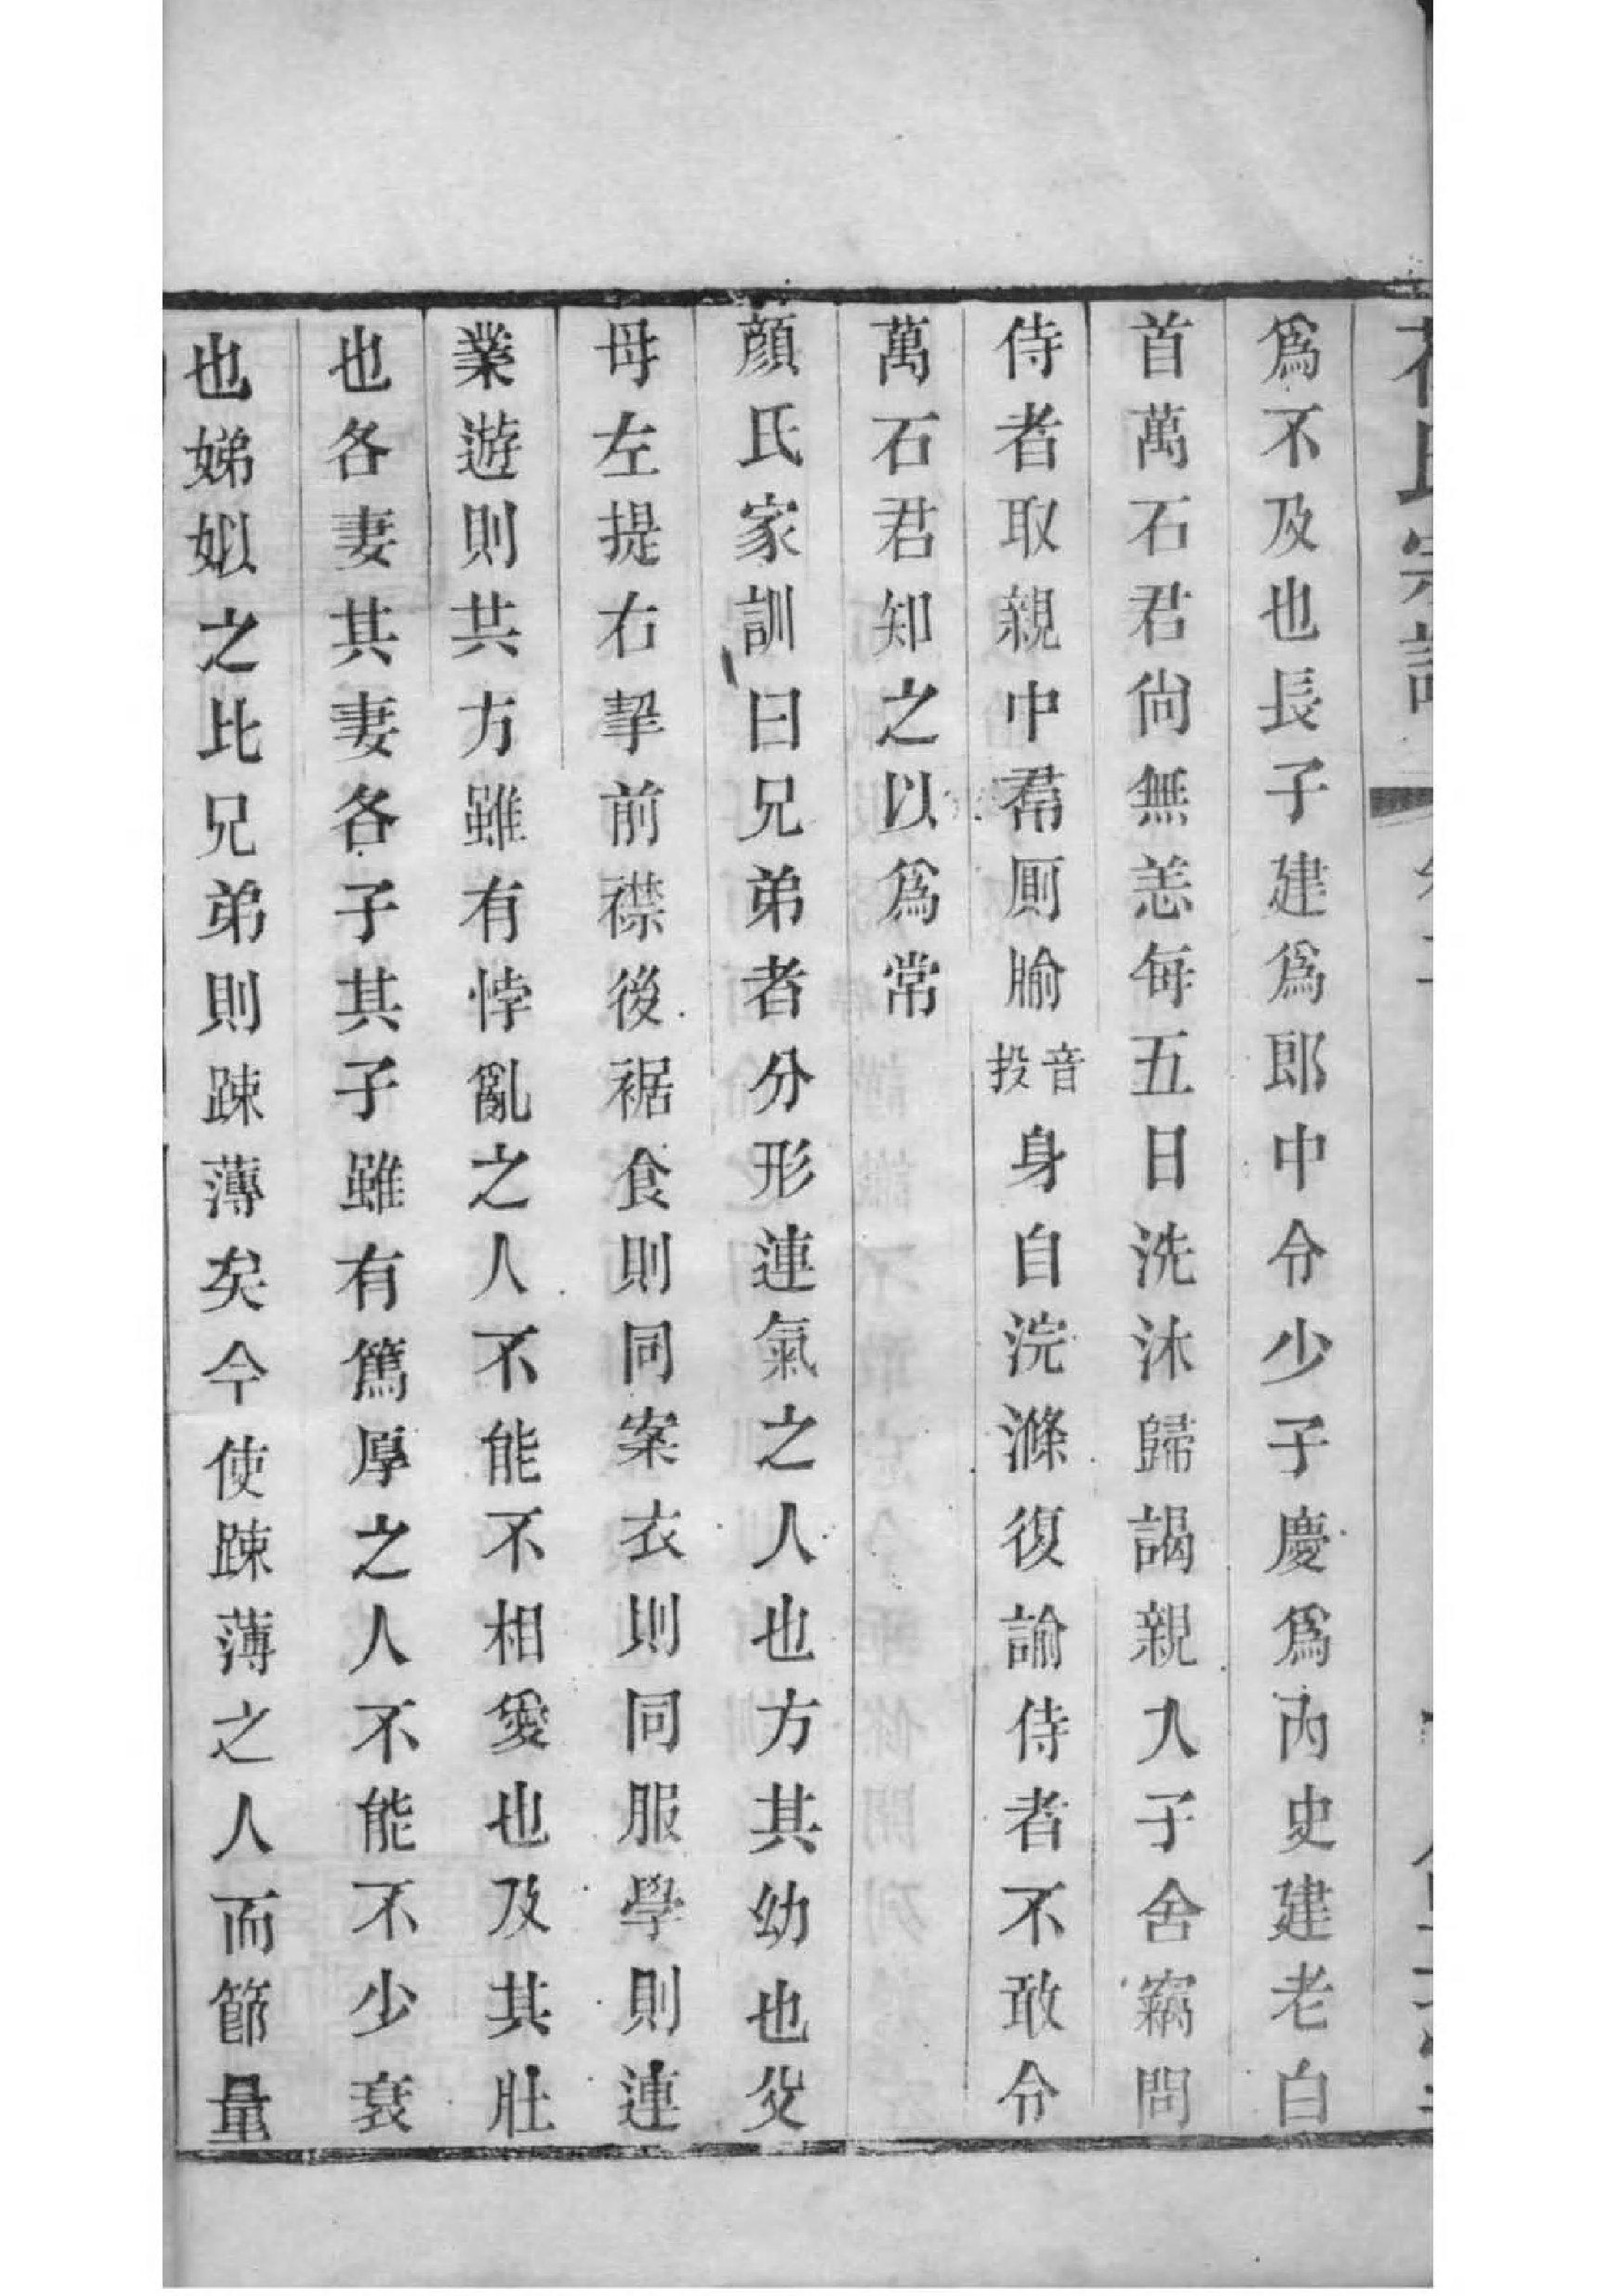 爲不及也長子建爲郎中令少子慶爲內史建老白
首萬石君尙無恙每五日洗沐歸謁親入子舍竊問
侍者取親中帬厠牏音投身自浣滌復諭侍者不敢令
萬石君知之以爲常
顏氏家訓曰兄弟者分形連氣之人也方其幼也父
母左提右挈前襟後裾食則同案衣則同服學則連
業遊則共方雖有悖亂之人不能不相愛也及其壯
也各妻其妻各子其子雖有篤厚之人不能不少衰
也娣姒之比兄弟則踈薄矣今使踈薄之人而節量